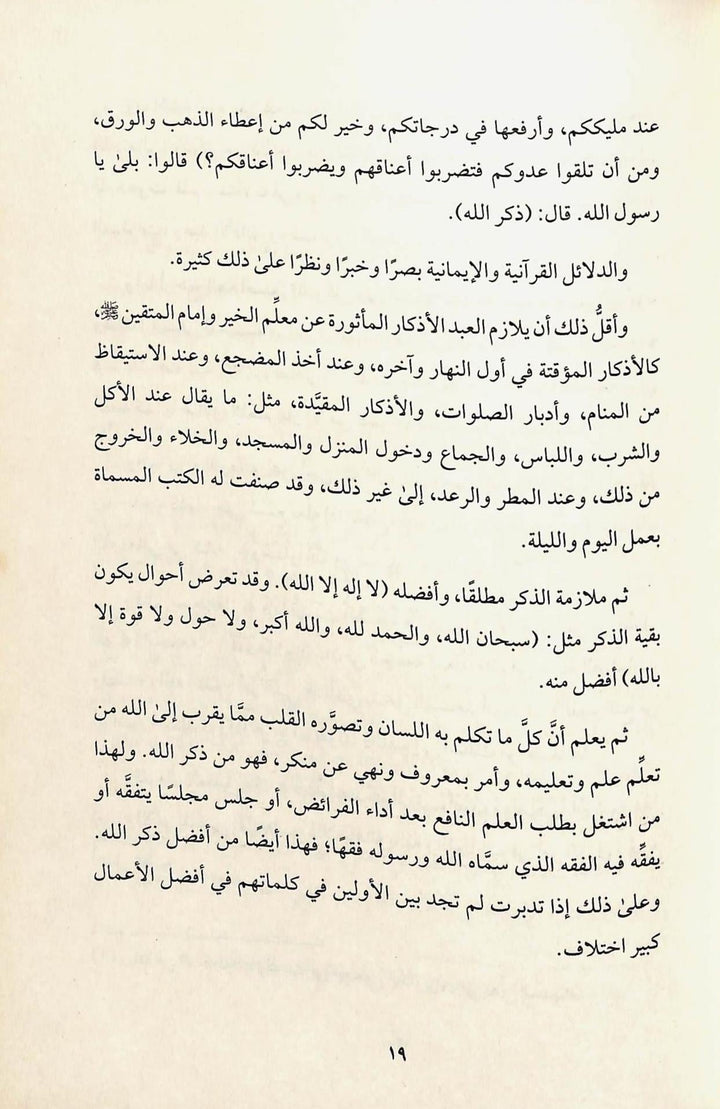 عند مليككم، وأرفعها في درجاتكم، وخير لكم من إعطاء الذهب والورق،
ومن أن تلقوا عدوكم فتضربوا أعناقهم ويضربوا أعناقكم؟) قالوا: بلىٰ يا
رسول الله. قال: (ذكر الله).
والدلائل القرآنية والإيمانية بصرًا وخبرًا ونظرًا علىٰ ذلك كثيرة.
وأقلُّ ذلك أن يلازم العبد الأذكار المأثورة عن معلِّم الخير وإمام المتقين ﷺ،
كالأذكار المؤقتة في أول النهار وآخره، وعند أخذ المضجع، وعند الاستيقاظ
من المنام، وأدبار الصلوات، والأذكار المقيَّدة، مثل: ما يقال عند الأكل
والشرب، واللباس، والجماع ودخول المنزل والمسجد، والخلاء والخروج
من ذلك، وعند المطر والرعد، إلىٰ غير ذلك، وقد صنفت له الكتب المسماة
بعمل اليوم والليلة.
ثم ملازمة الذكر مطلقًا، وأفضله (لا إله إلا الله). وقد تعرض أحوال يكون
بقية الذكر مثل: (سبحان الله، والحمد لله، والله أكبر، ولا حول ولا قوة إلا
بالله) أفضل منه.
ثم يعلم أنَّ كلَّ ما تكلم به اللسان وتصوَّره القلب ممَّا يقرب إلىٰ الله من
تعلِّم علم وتعليمه، وأمر بمعروف ونهي عن منكر، فهو من ذكر الله. ولهذا
من اشتغل بطلب العلم النافع بعد أداء الفرائض، أو جلس مجلسًا يتفقَّه أو
يفقِّه فيه الفقه الذي سمَّاه الله ورسوله فقهًا؛ فهذا أيضًا من أفضل ذكر الله.
وعلىٰ ذلك إذا تدبرت لم تجد بين الأولين في كلماتهم في أفضل الأعمال
كبير اختلاف.
١٩